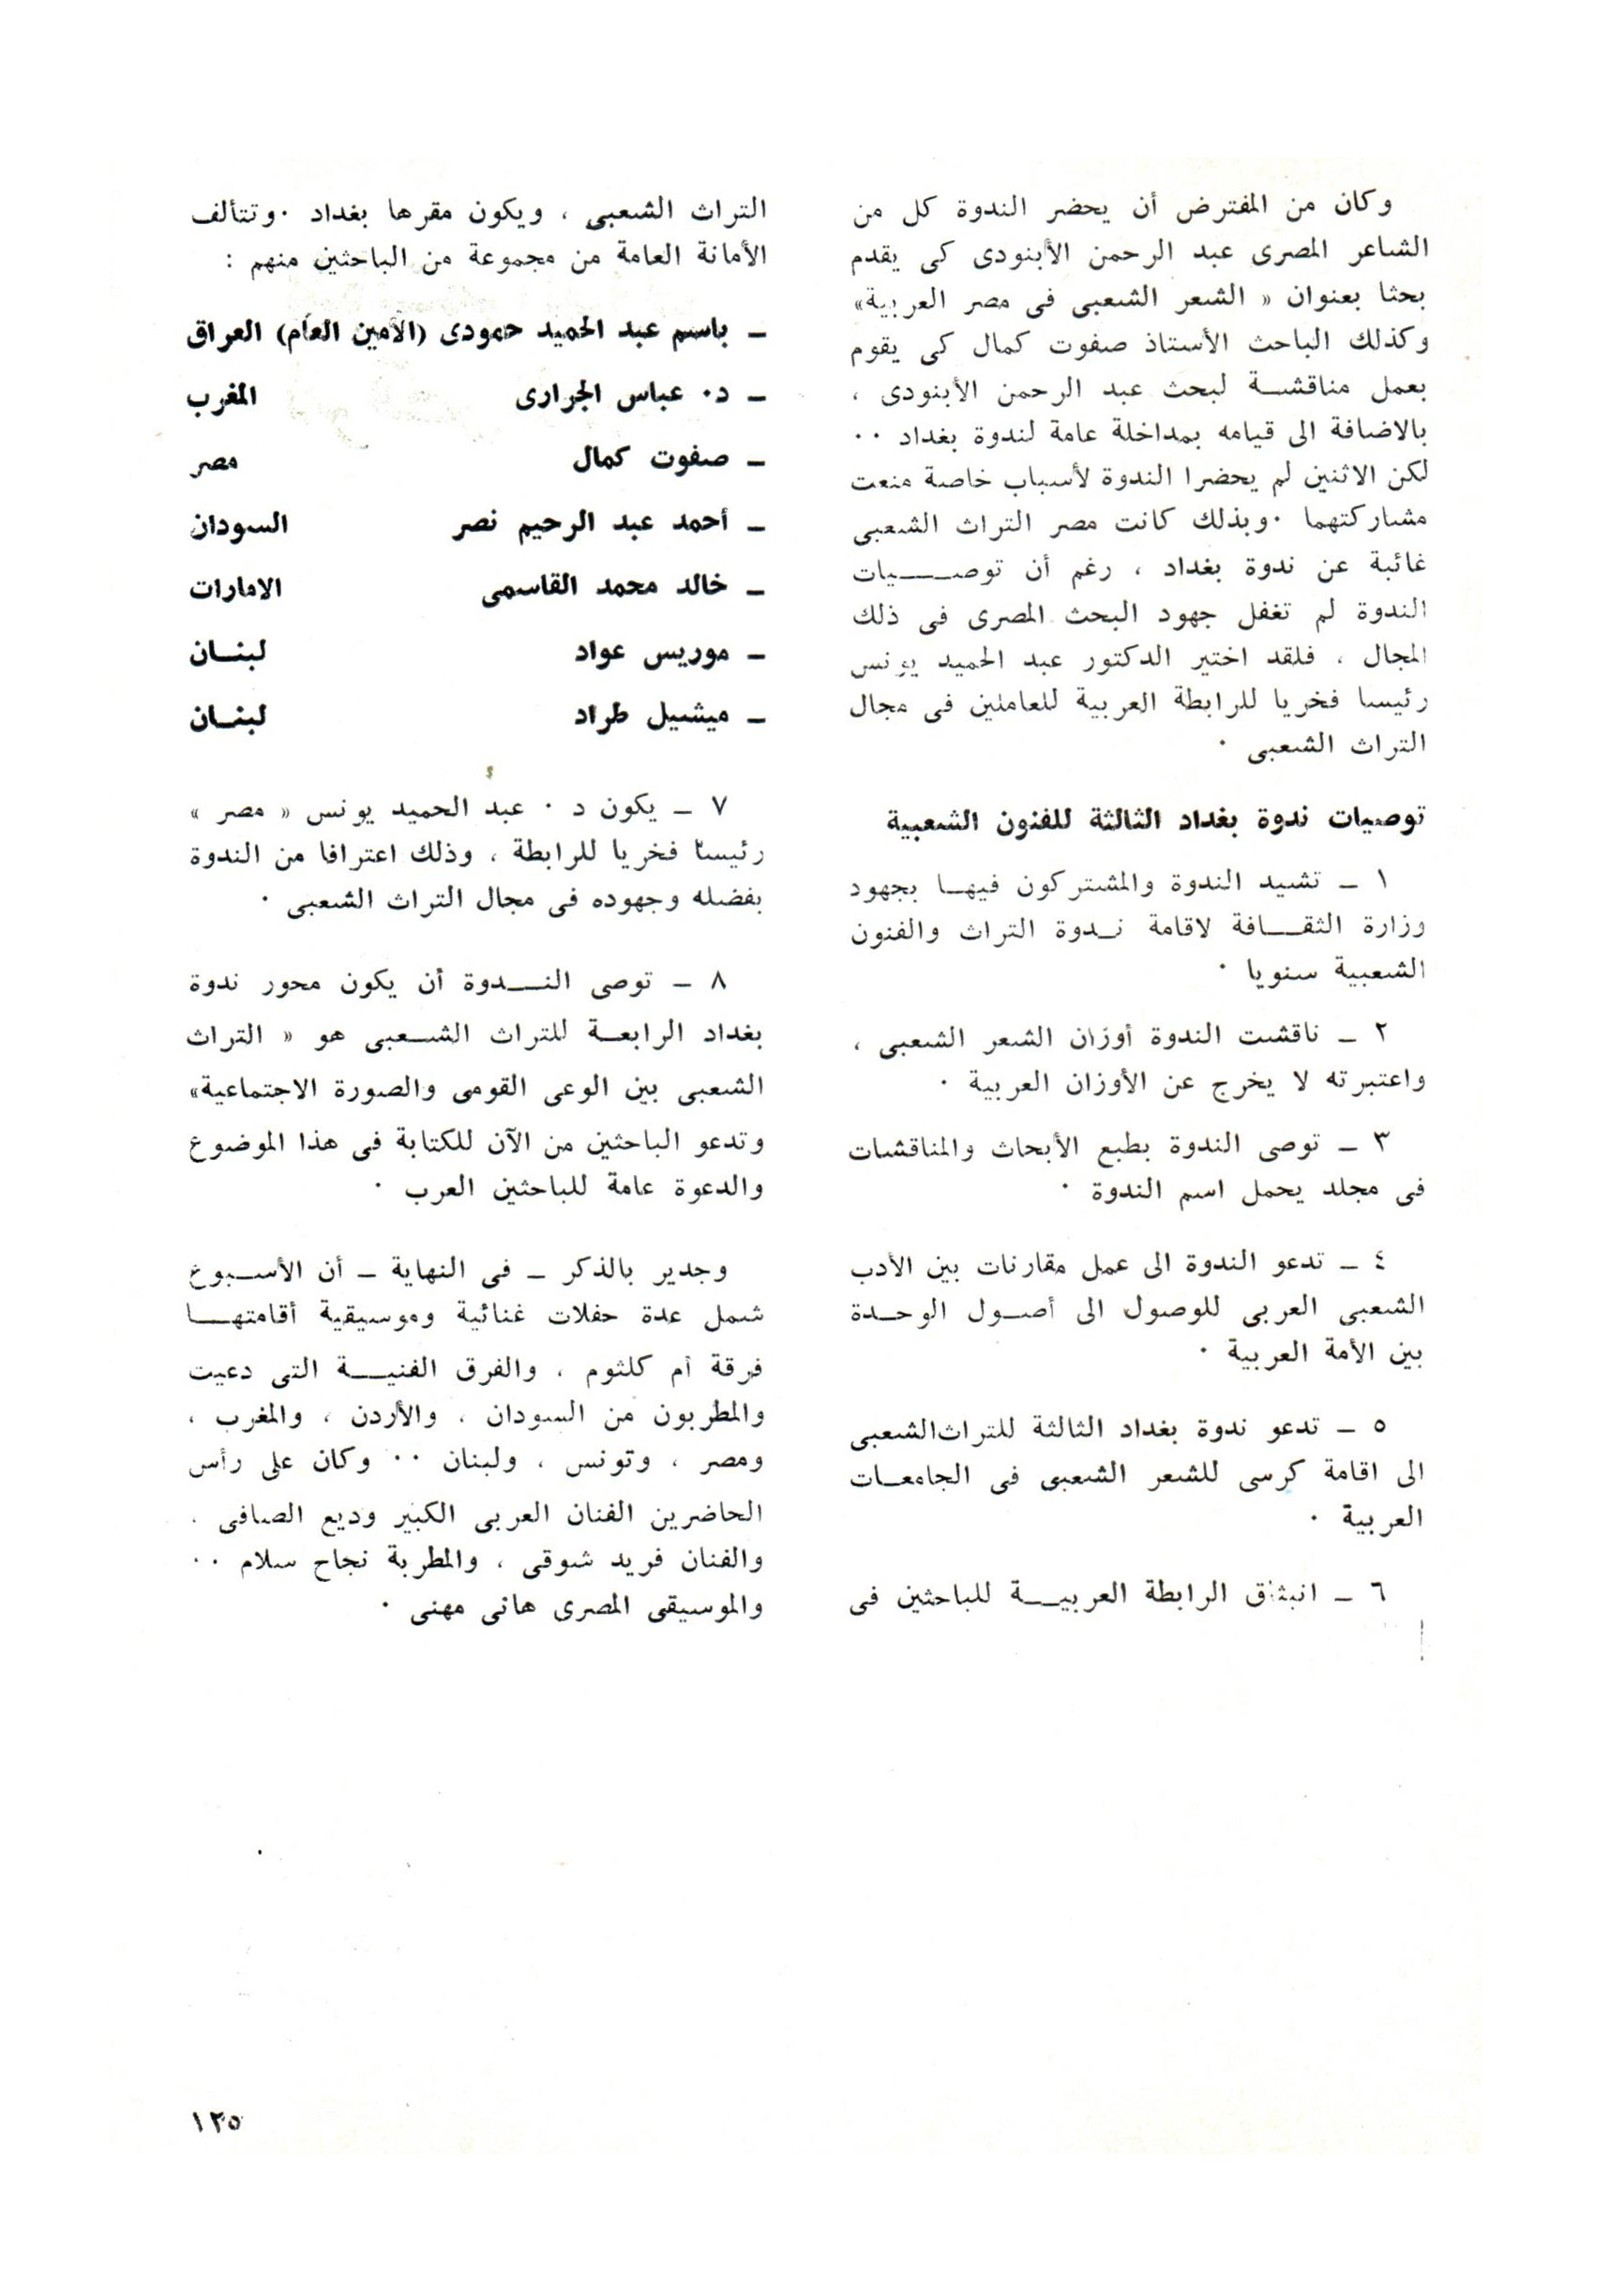 وكان من المفترض أن يحضر الندوة كل من
الشاعر المصرى عبد الرحمن الأبنودى كى يقدم
بحثا بعنوان « الشعر الشعبى فى مصر العربية»
وكذلك الباحث الأستاذ صفوت كمال كى يقوم
بعمل مناقشة لبحث عبد الرحمن الأبنودى ،
بالاضافة الى قيامه بمداخلة عامة لندوة بغداد ٠٠
لكن الاثنين لم يحضرا الندوة لأسباب خاصة منعت
مشاركتهما ٠وبذلك كانت مصر التراث الشعبى
غائبة عن ندوة بغداد ، رغم أن توصيات
الندوة لم تغفل جهود البحث المصرى فى ذلك
المجال ، فلقد اختير الدكتور عبد الحميد يونس
رئيسا فخريا للرابطة العربية للعاملين فى مجال
التراث الشعبى ٠
توصيات ندوة بغداد الثالثة للفنون الشعبية
١ ـ تشيد الندوة والمشتركون فيها بجهود
وزارة الثقافة لاقامة ندوة التراث والفنون
الشعبية سنويا ٠
٢ ـ ناقشت الندوة أوزان الشعر الشعبى ،
واعتبرته لا يخرج عن الأوزان العربية ٠
٣ ـ توصى الندوة بطبع الأبحاث والمناقشات
فى مجلد يحمل اسم الندوة ٠
٤ ـ تدعو الندوة الى عمل مقارنات بين الأدب
الشعبى العربى للوصول الى أصول الوحدة
بين الأمة العربية ٠
٥ ـ تدعو ندوة بغداد الثالثة للتراث الشعبى
الى اقامة كرسى للشعر الشعبى فى الجامعات
العربية ٠
٦ ـ انبثاق الرابطة العربية للباحثين فى
التراث الشعبى ، ويكون مقرها بغداد ٠وتتألف
الأمانة العامة من مجموعة من الباحثين منهم :
ـ باسم عبد الحميد حمودى (الأمين العام) العراق
ـ د٠ عباس الجرارى المغرب
ـ صفوت كمال مصر
ـ أحمد عبد الرحيم نصر السودان
ـ خالد محمد القاسمى الامارات
ـ موريس عواد لبنان
ـ ميشيل طراد لبنان
٧ ـ يكون د ٠ عبد الحميد يونس « مصر »
رئيسا فخريا للرابطة ، وذلك اعترافا من الندوة
بفضله وجهوده فى مجال التراث الشعبى ٠
٨ ـ توصى الندوة أن يكون محور ندوة
بغداد الرابعة للتراث الشعبى هو « التراث
الشعبى بين الوعى القومى والصورة الاجتماعية»
وتدعو الباحثين من الآن للكتابة فى هذا الموضوع
والدعوة عامة للباحثين العرب ٠
وجدير بالذكر ـ فى النهاية ـ أن الأسبوع
شمل عدة حفلات غنائية وموسيقية أقامتها
فرقة أم كلثوم ، والفرق الفنية التى دعيت
والمطربون من السودان ، والأردن ، والمغرب ،
ومصر ، وتونس ، ولبنان ٠٠ وكان على رأس
الحاضرين الفنان العربى الكبير وديع الصافى ،
والفنان فريد شوقى ، والمطربة نجاح سلام ٠٠
والموسيقى المصرى هانى مهنى ٠
١٢٥